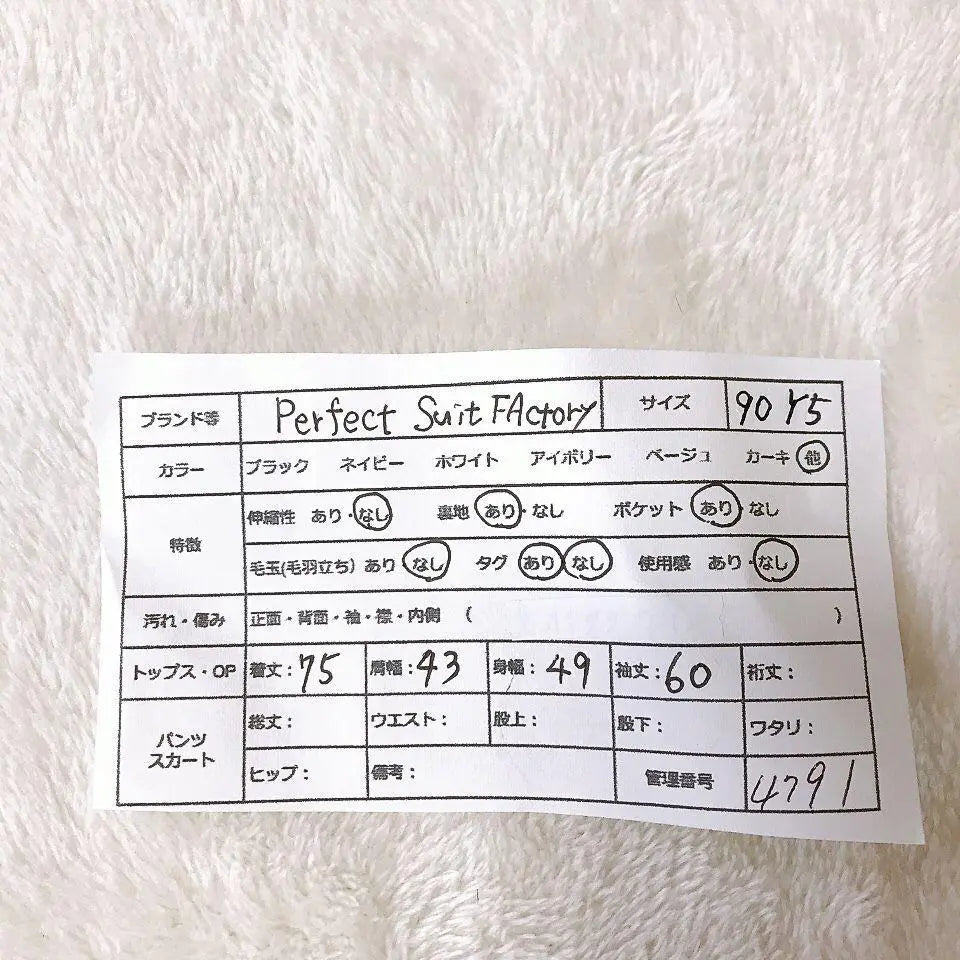 ブランド等 Perfect Suit FActory サイズ 90 Y5
カラー ブラック ネイビー ホワイト アイボリー ベージュ カーキ 他
特徴 伸縮性 あり・なし 裏地 あり・なし ポケット あり・なし
毛玉(毛羽立ち) あり・なし タグ あり・なし 使用感 あり・なし
汚れ・傷み 正面・背面・袖・襟・内側 ( )
トップス・OP 着丈:75 肩幅:43 身幅:49 袖丈:60 裄丈:
パンツ スカート 総丈: ウエスト: 股上: 股下: ワタリ:
ヒップ: 備考: 管理番号 4791